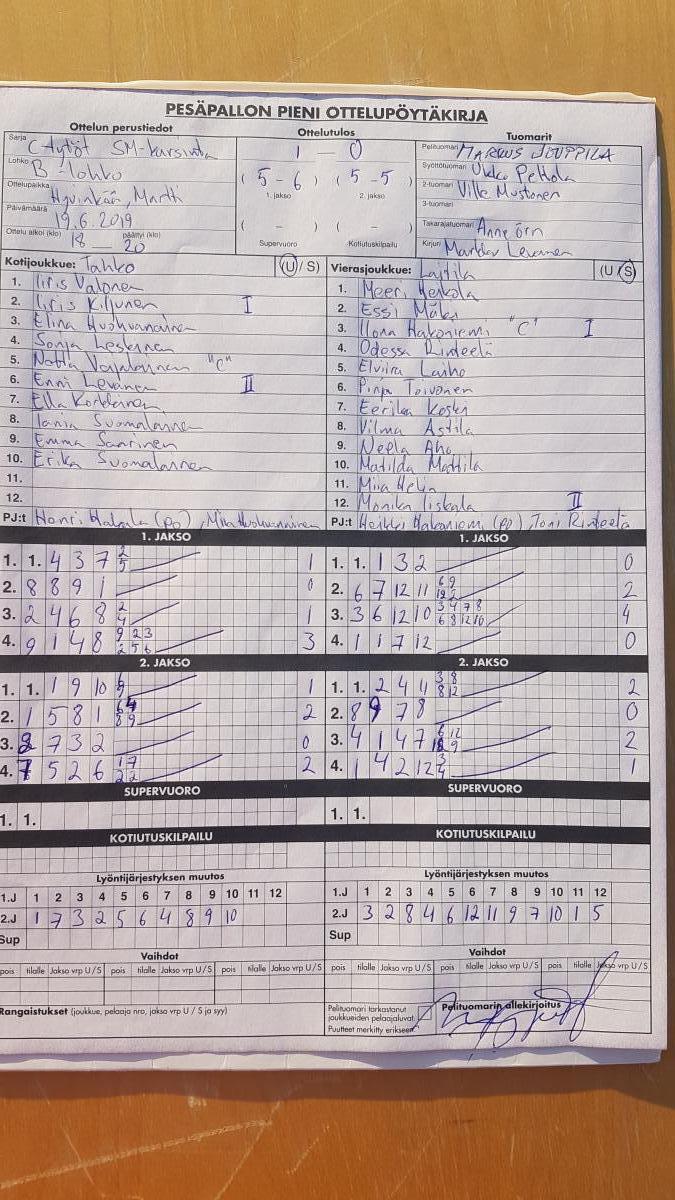 PESÄPALLON PIENI OTTELUPÖYTÄKIRJA
Ottelun perustiedot
Ottelutulos
Tuomarit
Sarja C-tytöt SM-karsinta
Lohko B-lohko
Ottelupaikka Hyvinkää, Martti
Päivämäärä 19.6.2019
Ottelu alkoi (klo) 18 päättyi (klo) 20
1 — 0
( 5 - 6 ) ( 5 - 5 )
1. jakso 2. jakso
( - ) ( - )
Supervuoro Kotiutuskilpailu
Pelituomari MARKUS JOUPPILA
Syöttötuomari Ukko Peltola
2-tuomari Ville Mustonen
3-tuomari
Takarajatuomari Anne Örn
Kirjuri Markku Levanen
Kotijoukkue: Tahko (U / S)
1. Iiris Valonen
2. Iiris Kiljunen I
3. Elina Huohvanainen
4. Sonja Leskinen
5. "C"
6. Enni Levanen II
7. Ella
8. Tania Suomalainen
9. Emma Saarinen
10. Erika Suomalainen
11.
12.
PJ:t Henri Hakala (PO), Mira Huohvanainen
Vierasjoukkue: Laitila (U / S)
1. Meeri Heikola
2. Essi Mäki
3. Ilona Hakoniemi "C" I
4. Odessa Rinteelä
5. Elviira Laiho
6. Pinja Toivonen
7. Eerika Koski
8. Vilma Astila
9. Neela Aho
10. Matilda Mattila
11. Miia Helin
12. Monika Iiskala II
PJ:t Heikki Hakoniemi (PO), Toni Rinteelä
1. JAKSO
1. 1. 4 3 7 2 5 1
2. 8 8 9 1 0
3. 2 4 6 8 2 4 1
4. 9 1 4 8 9 23 2 5 6 3
1. JAKSO
1. 1. 1 3 2 0
2. 6 7 12 11 6 9 12 2 2
3. 3 6 12 10 3 4 7 8 6 8 12 10 4
4. 1 1 7 12 0
2. JAKSO
1. 1. 1 9 10 1
2. 1 5 8 1 8 9 2
3. 2 7 3 2 0
4. 7 5 2 6 17 22 2
2. JAKSO
1. 1. 2 4 4 3 8 8 12 2
2. 8 9 7 8 0
3. 4 1 4 7 6 12 2
4. 1 4 2 12 3 4 1
SUPERVUORO
1. 1.
SUPERVUORO
1. 1.
KOTIUTUSKILPAILU
KOTIUTUSKILPAILU
Lyöntijärjestyksen muutos
1.J 1 2 3 4 5 6 7 8 9 10 11 12
2.J 1 7 3 2 5 6 4 8 9 10
Sup
Lyöntijärjestyksen muutos
1.J 1 2 3 4 5 6 7 8 9 10 11 12
2.J 3 2 8 4 6 12 11 9 7 10 1 5
Sup
Vaihdot
pois tilalle Jakso vrp U / S pois tilalle Jakso vrp U / S pois tilalle Jakso vrp U / S
Vaihdot
pois tilalle Jakso vrp U / S pois tilalle Jakso vrp U / S pois tilalle Jakso vrp U / S
Rangaistukset (joukkue, pelaaja nro, jakso vrp U / S ja syy)
Pelituomari tarkastanut
joukkueiden pelaajaluvat.
Puutteet merkitty erikseen
Pelituomarin allekirjoitus